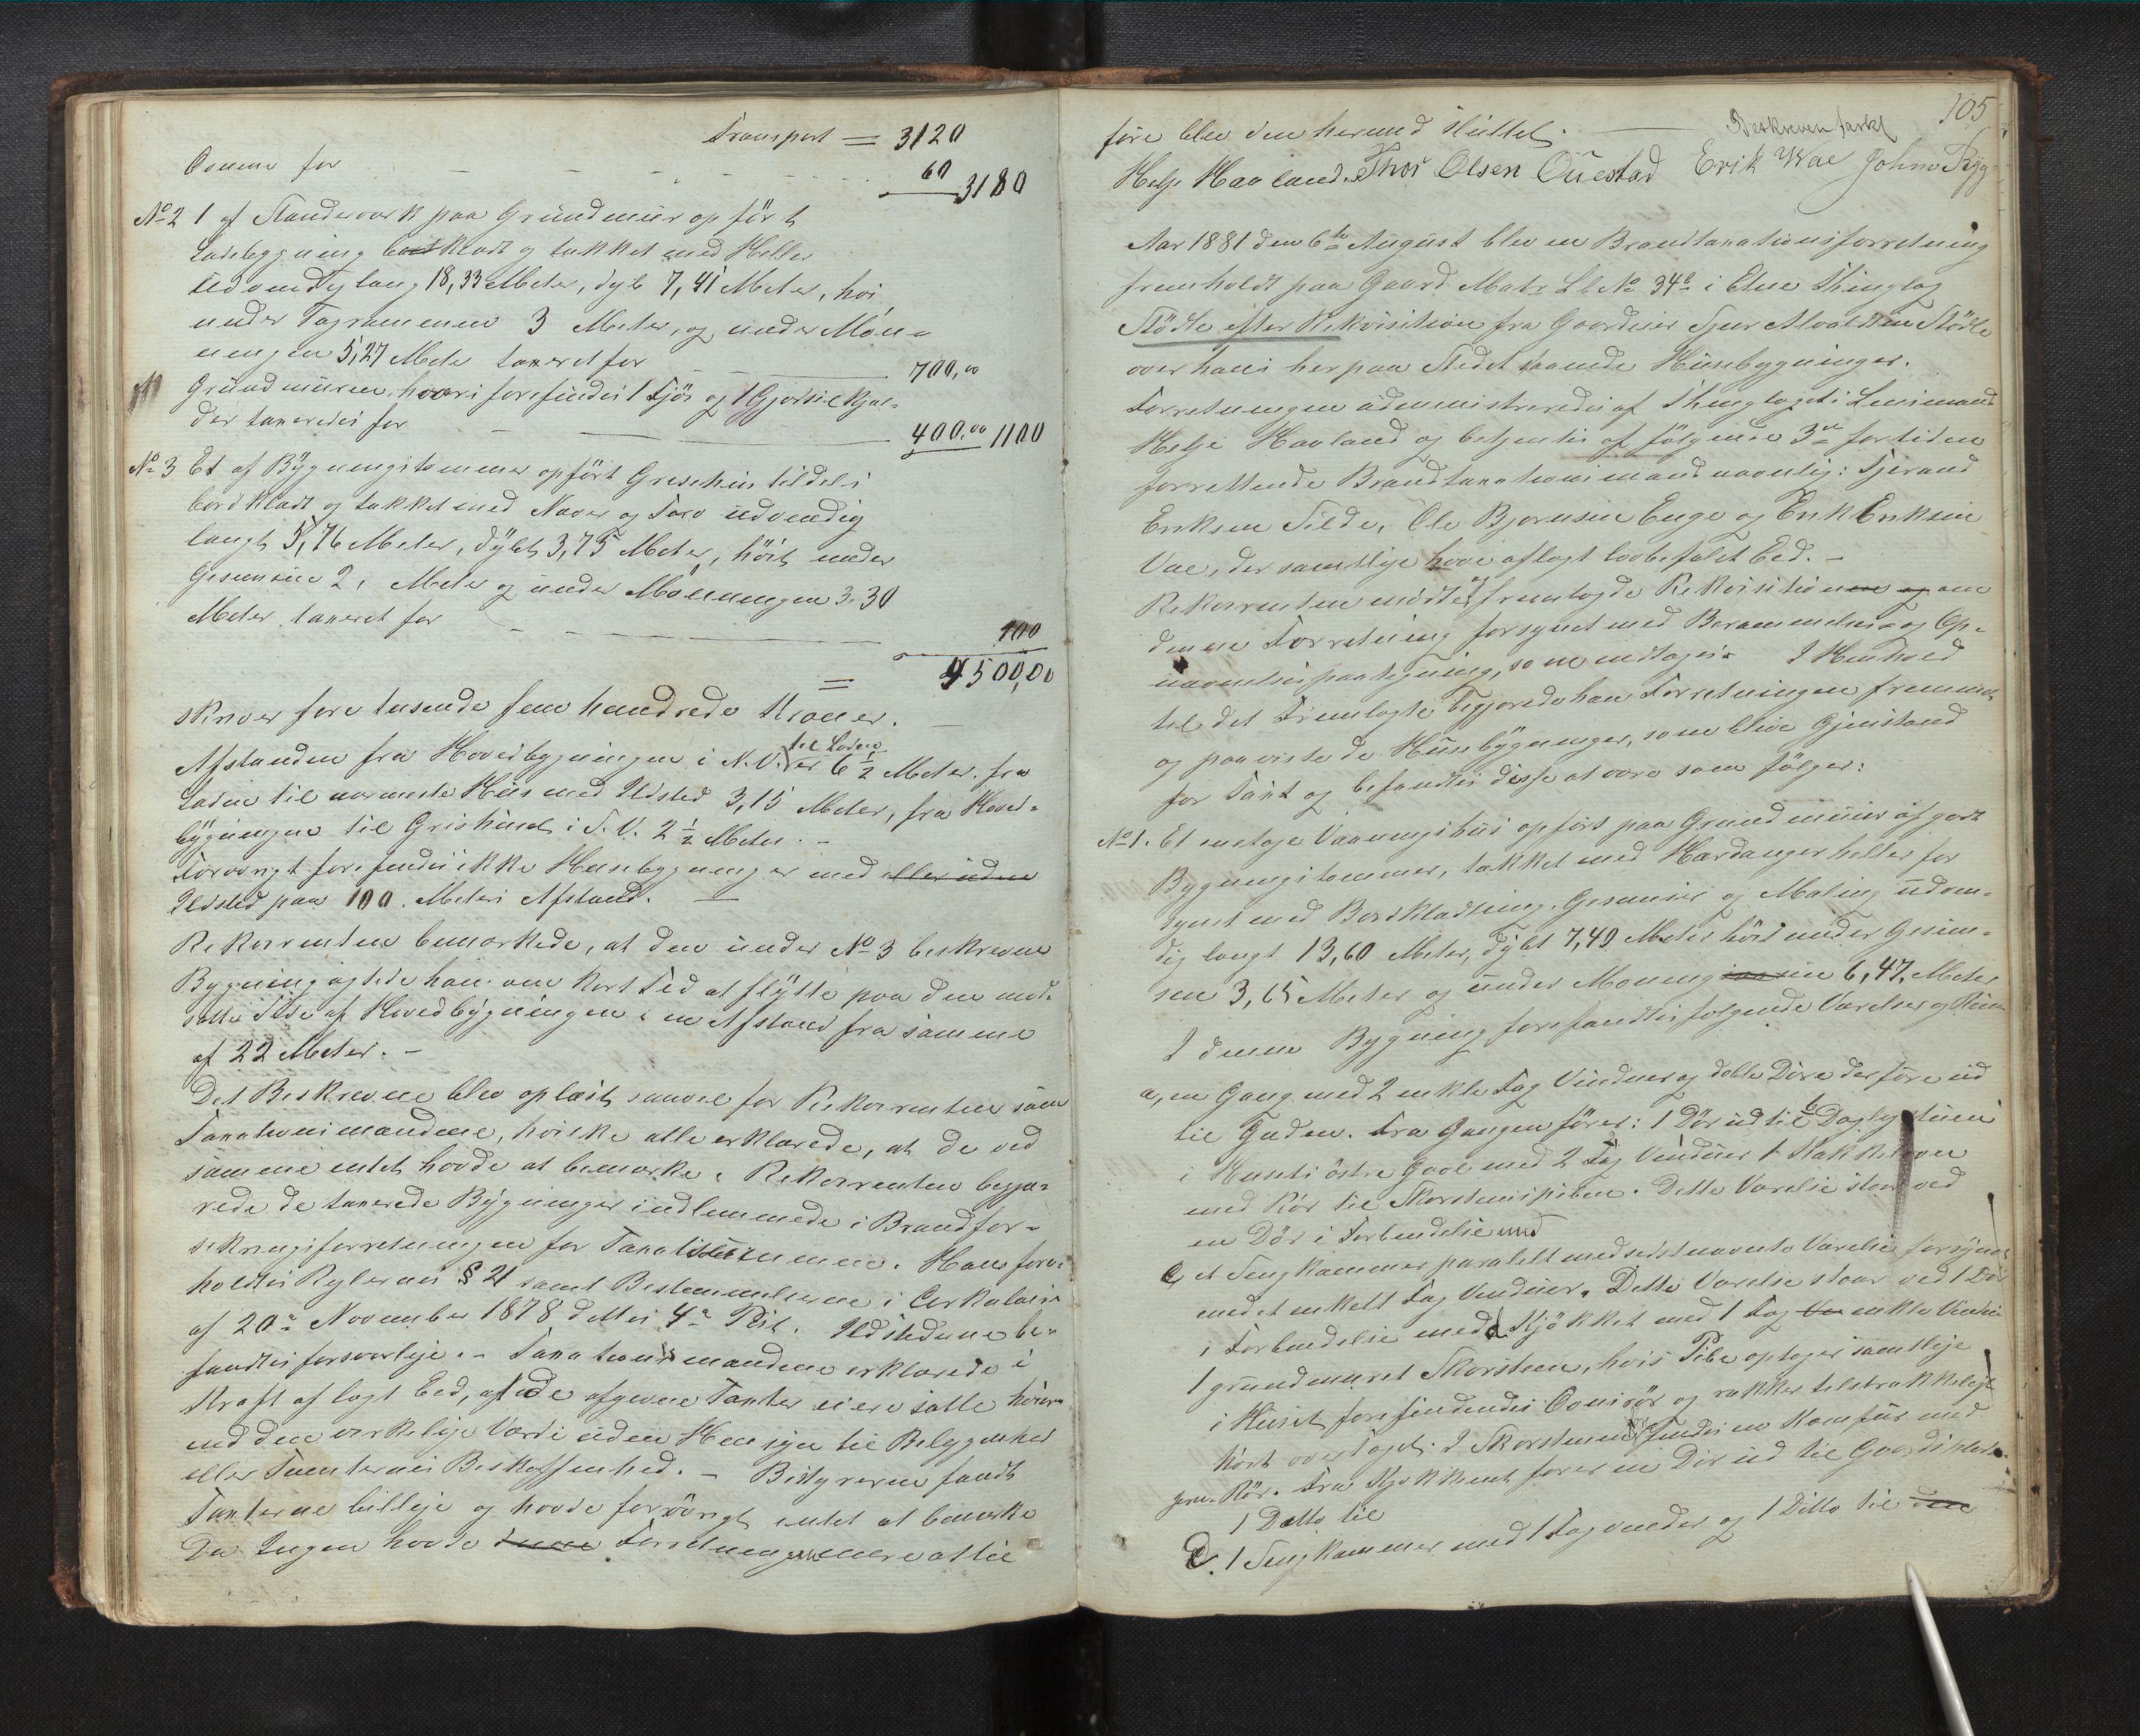 Transport = 3120
Ovnene for 60 3180
No 2 1 af Standerværk paa Grundmuur opført
Ladebygning bordklædt og tækket med Heller
Udvendig lang 18,33 Meter, dyb 7,41 Meter, høi
under Tagrammen 3 Meter, og under Møn-
ningen 5,27 Meter taxeret for 700,00
Grundmuren, hvori forefindes 1 Fjøs og 1 Gjødselkjæl-
der taxeredes for 400,00 1100
No 3 Et af Bygningstømmer opført Grisehus tildels
bordklædt og tækket med Næver og Torv udvendig
langt 5,76 Meter, dybt 3,75 Meter, høit under
Gesimsen 2, Meter og under Mønningen 3.30
Meter taxeret for 100
= 4500,00
skriver fire tusende fem hundrede Kroner.
Afstanden fra Hovedbygningen i N.V. til Laden er 6 1/2 Meter, fra
Laden til nærmeste Huus med Ildsted 3,15 Meter, fra Hoved-
bygningen til Grishuset i S.V. 2 1/2 Meter. -
Forøvrigt forefindes ikke Husebygninger med eller uden
Ildsted paa 100. Meters Afstand.
Rekvirenten bemærkede, at den under No 3 beskrevne
Bygning agtede han om kort Tid at flytte paa den mod-
satte Side af Hovedbygningen i en Afstand fra samme
af 22 Meter. -
Det Beskrevne blev oplæst saavel for Rekvirenten som
Taxationsmændene, hvilke alle erklærede, at de ved
samme intet havde at bemærke. Rekvirenten begjæ-
rede de taxerede Bygninger indlemmede i Brandfor-
sikringsforretningen for Taxationssummen. Ham fore-
holdtes Reglernes § 21 samt Bestemmelserne i Cirkulaire
af 20de November 1878 dettes 4de Post. Ildstederne be-
fandtes forsvarlige. - Taxationsmændene erklærede i
Kraft af lagt Eed, at de afgivne Taxter ei ere satte høiere
end den virkelige Værdi uden Hensyn til Beliggenhed
eller Tomternes Beskaffenhed. - Bestyreren fandt
Taxterne billige og havde forøvrigt intet at bemærke
Da Ingen havde denne Forretning mere at til
105
føre blev den hermed sluttet. Beskreven taxt
Helje Havland. Thor Olsen Øuestad Erik Wae John Ryg
Aar 1881 den 6te August blev en Brandtaxationsforretning
fremholdt paa Gaard Matr. Lb No 34a i Etne Thinglag
Stødle efter Rekvisition fra Gaardeier Sjur Alvaldsen Stødle
over hans her paa Stedet havende Husebygninger.
Forretningen administreredes af Thinglagets Lensmand
Helje Havland og betjentes af følgende 3de for tiden
forrettende Brandtaxationsmænd navnlig: Tjerand
Eriksen Silde, Ole Bjørnsen Enge og Erik Eriksen
Vae, der samtlige have aflagt lovbefalet Eed. -
Rekvirenten mødte og fremlagde Rekvisitionen og om
denne Forretning forsynet med Berammelses- og Op-
nævnelsespaategning, som indtages. I Henhold
til det Fremlagte begjærede han Forretningen fremmet
og paaviste de Husebygninger, som blive Gjenstand
for Taxt og befandtes disse at være som følger:
No 1. Et enetages Vaaningshuus opført paa Grundmuur af godt
Bygningstømmer, tækket med Hardangerheller for
synet med Bordklædning, Gesimser og Maling udven-
dig langt 13,60 Meter, dybt 7,40 Meter høit under Gesim-
sen 3,65 Meter og under Mønningen 6,47, Meter
I denne Bygning forefandtes følgende Værelser og Rum
a, en Gang med 2 enkle Fag Vinduer og doble Døre der føre ud
til Gaden. Fra Gangen fører: 1 Dør ud til b Dagligstuen
i Husets østre Gavl med 2 Fag Vinduer 1 Kakkelovn
med Rør til Skorstenspiben. Dette Værelse staar ved
en Dør i Forbindelse med
c, et Sengkammer paralelt med sidstnævnte Værelse forsynet
med et enkelt Fag Vinduer. Dette Værelse staar ved 1 Dør
i Forbindelse med d Kjøkket med 1 Fag enkle Vinduer
1 grundmuret Skorsteen, hvis Pibe optager samtlige
i Huset forefindendes Ovnsrør og rækker tilstrækkeligt
høit over Taget. I Skorstenen forefindes en Komfur med
Jern-Rør. Fra Kjøkkenet fører en Dør ud til Gaardsplads
1 Ditto til
e. 1 Sengkammer med 1 Fag vinder og 1 Ditto til den